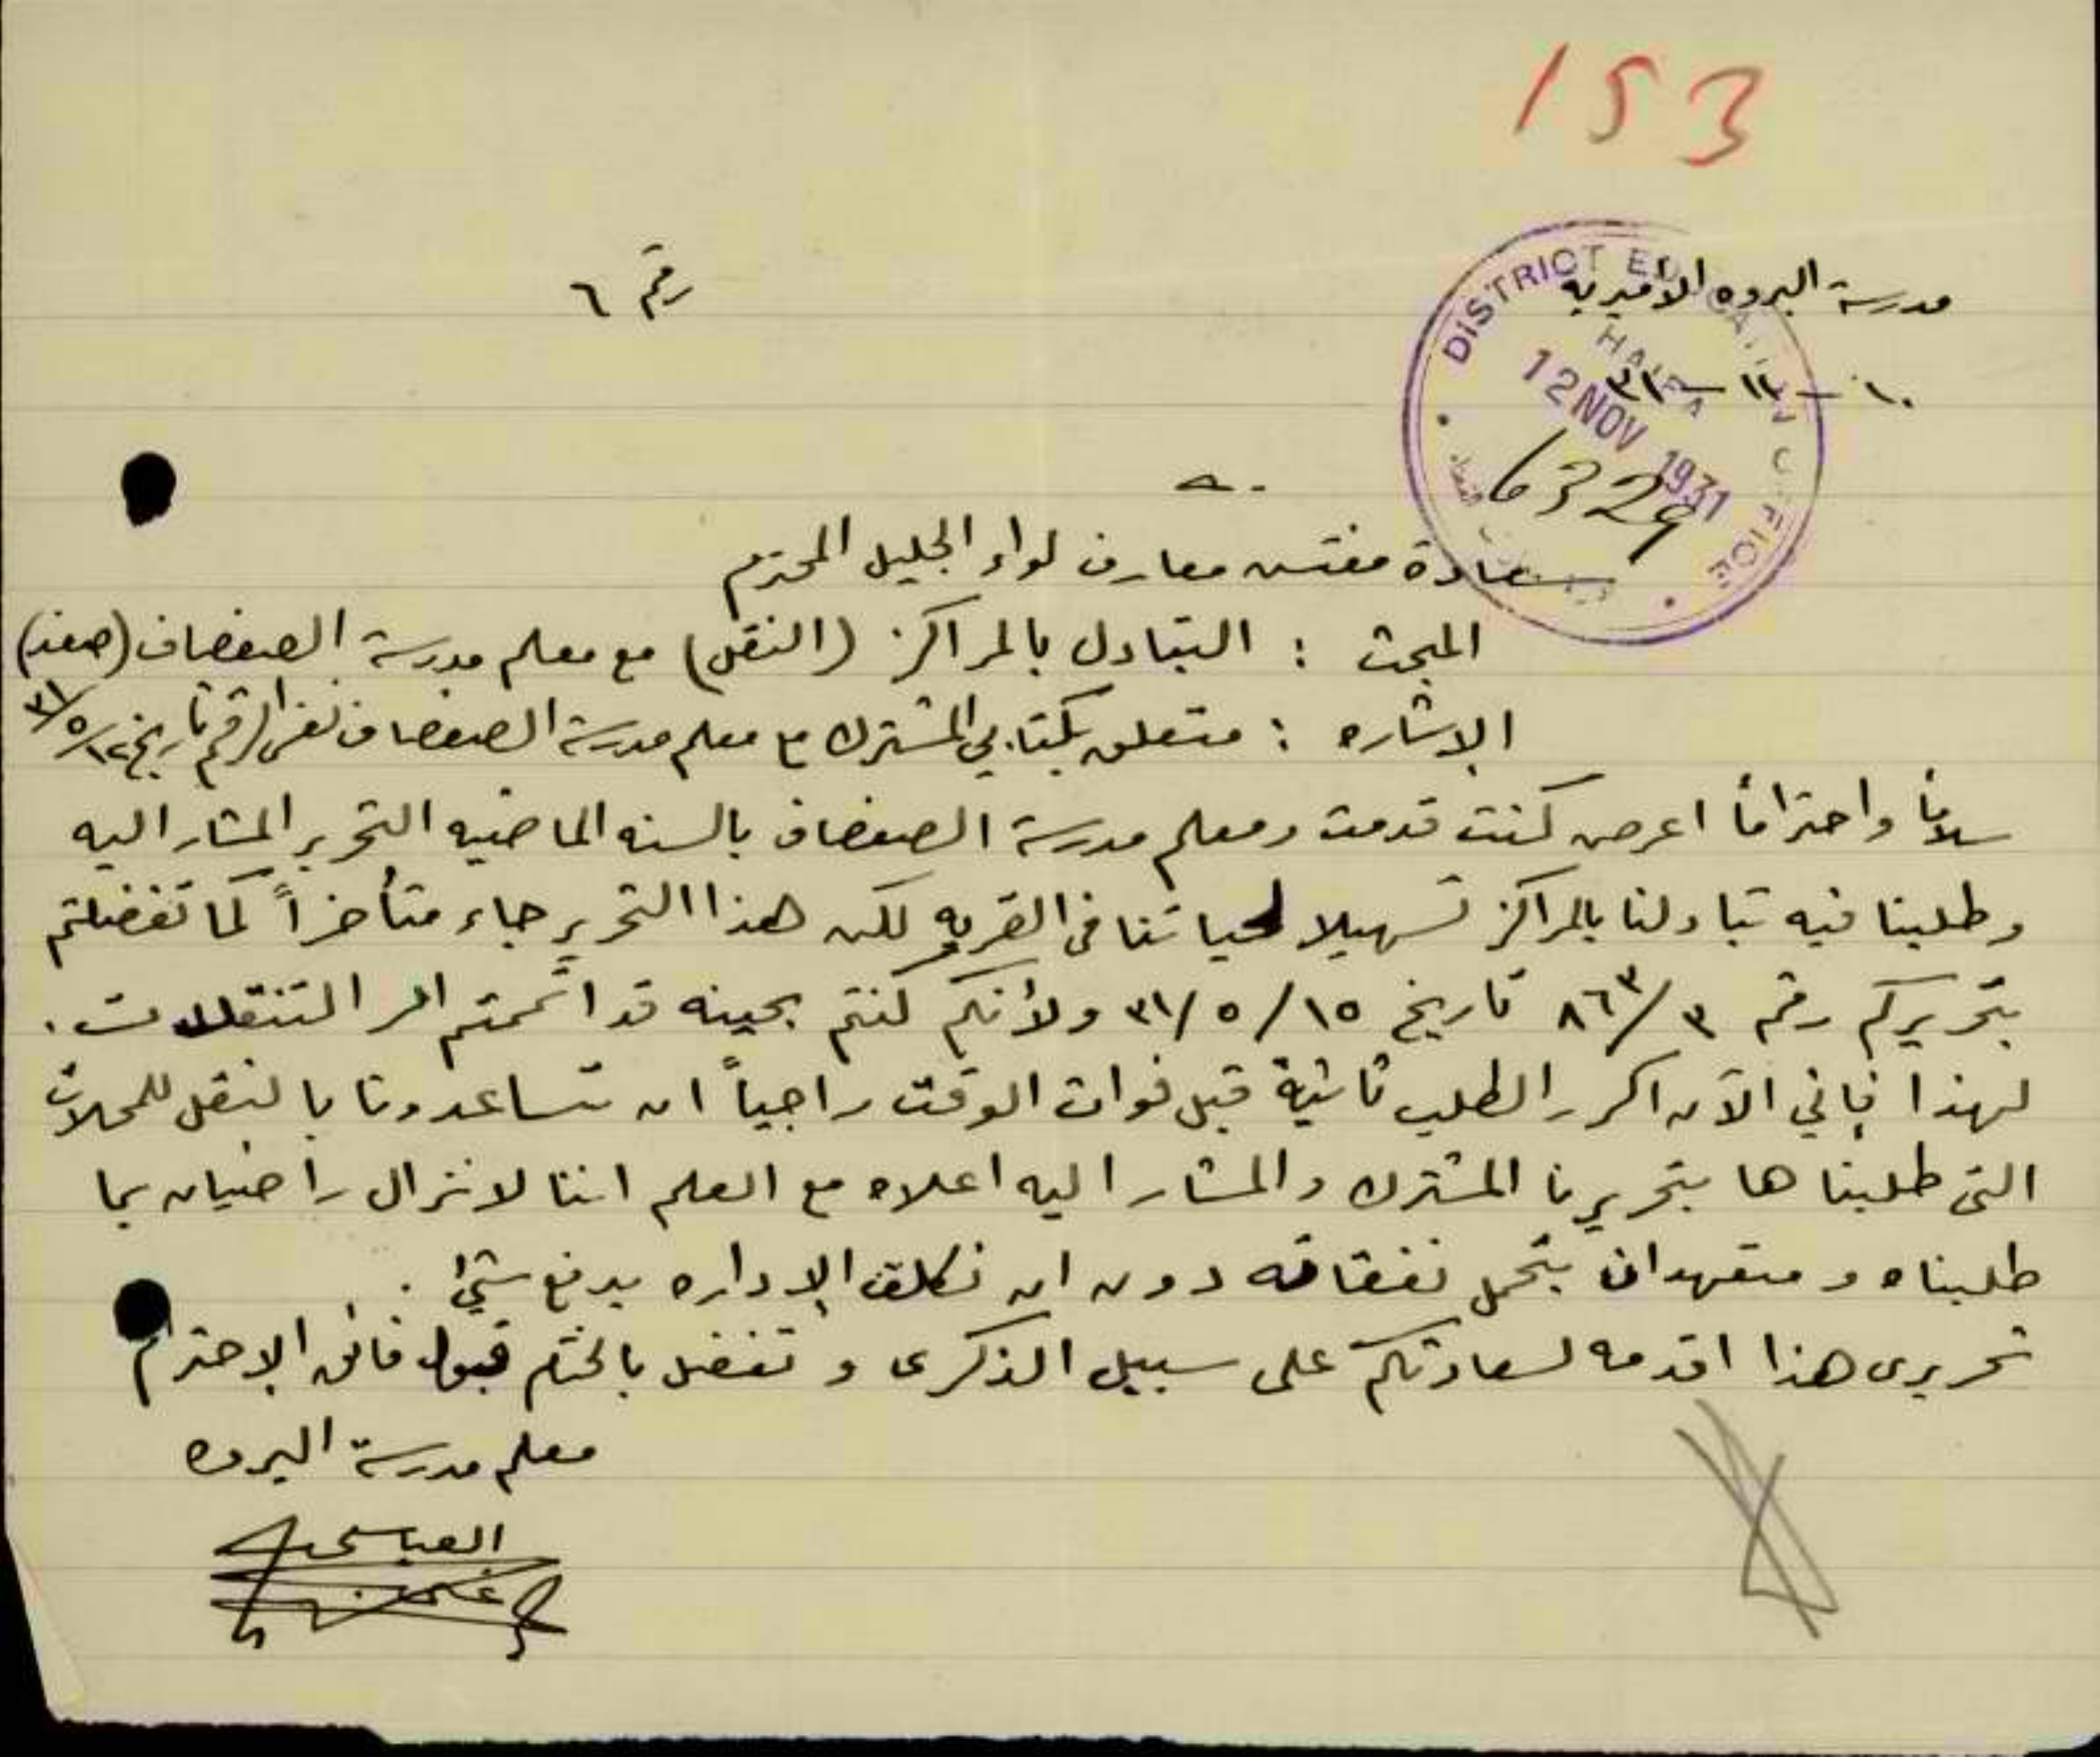 153
مدرسة البروه الاميريه
رقم ٦
١٠ - ١١ - ٣١
DISTRICT EDUCATION OFFICE
HAIFA
12 NOV 1931
6329
سعادة مفتش معارف لواء الجليل المحترم
المبحث : التبادل بالمراكز (النقل) مع معلم مدرسة الصفصاف (صفد)
الاشاره : متعلق بكتابي المشترك مع معلم مدرسة الصفصاف نفس الرقم تاريخ ١٢/٥/٣١
سلاماً واحتراماً اعرض كنت قدمت ومعلم مدرسة الصفصاف بالسنه الماضيه التحرير المشار اليه
وطلبنا فيه تبادلنا بالمراكز تسهيلا لحياتنا في القريه لكن هذا التحرير جاء متأخراً كما تفضلتم
بتحريركم رقم ٣/٨٦٣ تاريخ ١٥/٥/٣١ ولأنكم كنتم بحينه قد اتممتم امر التنقلات .
لهذا فإني الآن اكرر الطلب ثانية قبل فوات الوقت راجياً ان تساعدونا بالنقل للمحلات
التي طلبناها بتحريرنا المشترك والمشار اليه اعلاه مع العلم اننا لا نزال راضيان بما
طلبناه ومتعهدان بتحمل نفقاته دون ان نكلف الإداره بدفع شيئ .
تحريري هذا اقدمه لسعادتكم على سبيل الذكرى و تفضل بالختام قبول فائق الإحترام
معلم مدرسة البروه